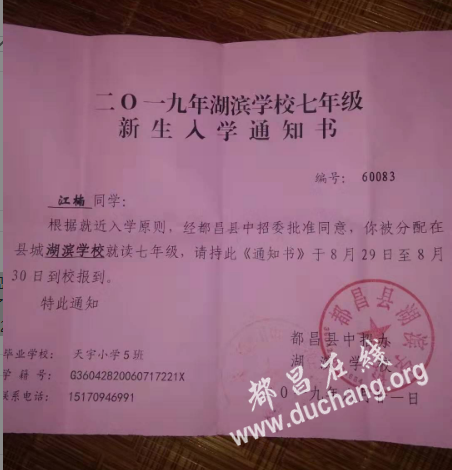 二O一九年湖滨学校七年级
新生入学通知书
编号：60083
江楠同学：
根据就近入学原则，经都昌县中招委批准同意，你被分配在
县城湖滨学校就读七年级，请持此《通知书》于8月29日至8月
30日到校报到。
特此通知
都昌县中招办
毕业学校：天宇小学5班
学籍号：G36042820060717221X
联系电话：15170946991
都昌县湖滨
都昌在线
www.duchang.org